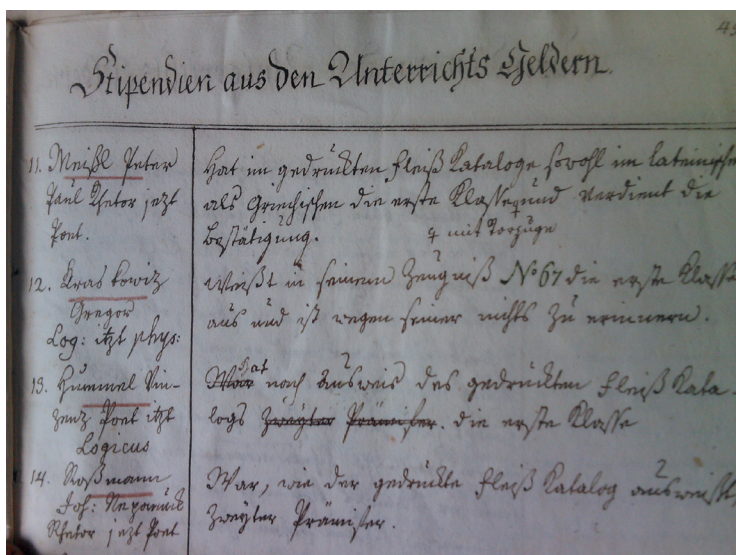 45
Stipendien aus den Unterrichts Geldern.
11. Meißl Peter
Paul Rhetor jezt
Poet.
Hat im gedruckten Fleiß Kataloge sowohl im Lateinischen
als Griechischen die erste Klasse und verdient die
Bestätigung. mit Vorzuge
12. Kraskowiz
Gregor
Log: itzt phys:
Weißt in seinem Zeugniß No 67 die erste Klasse
aus und ist wegen seiner nichts zu erinnern.
13. Hummel Vin-
zenz Poet itzt
Logicus
hat
War nach Ausweis des gedruckten Fleiß Kata-
logs zweyter Prämifer. die erste Klasse
14. Roßmann
Joh: Nepomuck
Rhetor jezt Poet
War, wie der gedruckte Fleiß Katalog ausweißt,
zweyter Prämifer.